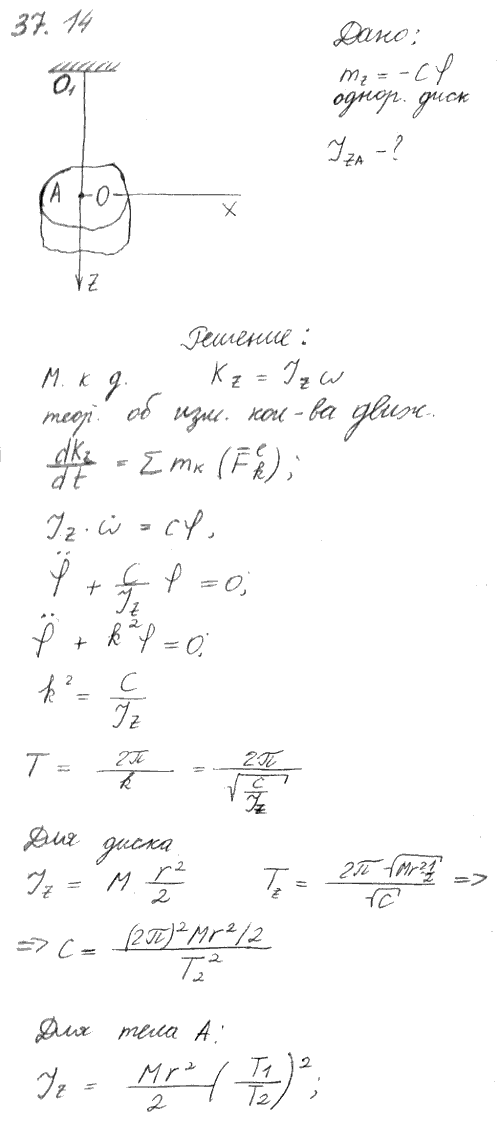 37.14
Дано:
m_z = -cφ
однор. диск
J_zA - ?
O₁
A O
x
z
Решение:
М. к д. K_z = J_z ω
теор. об изм. кол-ва движ.
dK_z/dt = Σ m_к (F̄_k^e);
J_z · ω̇ = cφ,
φ̈ + C/J_z φ = 0;
φ̈ + k²φ = 0;
k² = C/J_z
T = 2π/k = 2π/√(C/J_z)
Для диска
J_z = M r²/2 T_z = 2π √(Mr²1/2)/√C =>
=> C = (2π)² Mr²/2 / T₂²
Для тела А:
J_z = Mr²/2 (T₁/T₂)²;